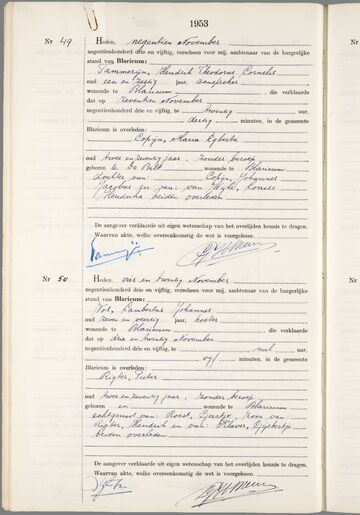 1953
Nr 49 Heden, negentien November
negentienhonderd drie en vijftig, verscheen voor mij, ambtenaar van de burgerlijke
stand van Blaricum:
Tammerijn, Hendrik Theodorus Cornelis
oud een en zestig jaar, aanspreker
wonende te Blaricum, die verklaarde
dat op zeventien November
negentienhonderd drie en vijftig, te twintig uur,
dertig minuten, in de gemeente
Blaricum is overleden:
Copijn, Maria Egberta
oud twee en zeventig jaar, zonder beroep,
geboren te De Bilt wonende te Blaricum
dochter van: Copijn, Johannes
Jacobus en van: van
Hendrika beiden overleden
De aangever verklaarde uit eigen wetenschap van het overlijden kennis te dragen.
Waarvan akte, welke overeenkomstig de wet is voorgelezen.
Nr 50 Heden, drie en twintig November
negentienhonderd drie en vijftig, verscheen voor mij, ambtenaar van de burgerlijke
stand van Blaricum:
Vos, Lambertus Johannes
oud zeven en veertig jaar, koster
wonende te Blaricum, die verklaarde
dat op drie en twintig November
negentienhonderd drie en vijftig, te nul uur,
vijf minuten, in de gemeente
Blaricum is overleden:
Rigter, Pieter
oud twee en zeventig jaar, zonder beroep
geboren en wonende te Blaricum
echtgenoot van: Roest, zoon van
Rigter, Hendrik en van: Klaver, Gijsbertje
beiden overleden
De aangever verklaarde uit eigen wetenschap van het overlijden kennis te dragen.
Waarvan akte, welke overeenkomstig de wet is voorgelezen.